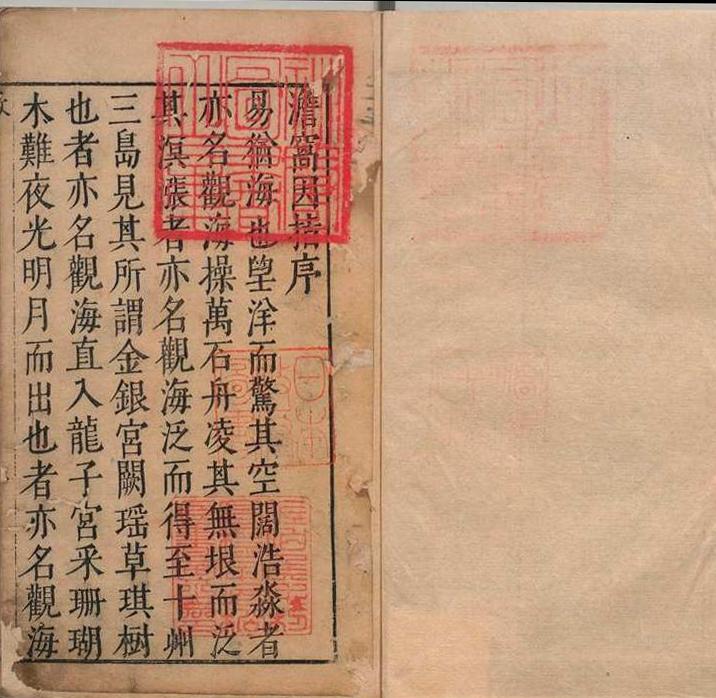 澹窩因指序
易猶海也朢洋而驚其空闊浩淼者
亦名觀海操萬石舟凌其無垠而泛
其溟漲者亦名觀海泛而得至十州
三島見其所謂金銀宮闕瑶草琪樹
也者亦名觀海直入龍子宮采珊瑚
木難夜光明月而出也者亦名觀海